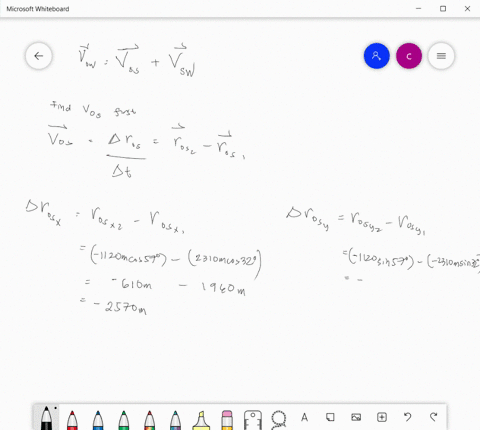 Microsoft Whiteboard
C
V⃗ow = V⃗os + V⃗sw
find Vos first
V⃗os = Δros / Δt = r⃗os₂ - r⃗os₁
Δrosx = rosx2 - rosx1
= (-1120mcos57°) - (2310mcos32°)
= -610m - 1960m
= -2570m
Δrosy = rosy2 - rosy1
= (-1120sin57°) - (-2310msin32°)
= -